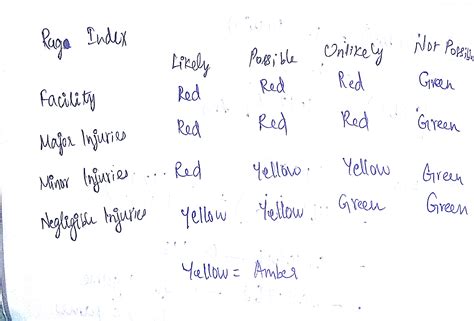 Page Index
Likely Possible Unlikely Not Possible
Facility Red Red Red Green
Major Injuries Red Red Red Green
Minor Injuries Red Yellow Yellow Green
Negligible Injuries Yellow Yellow Green Green
Yellow = Amber